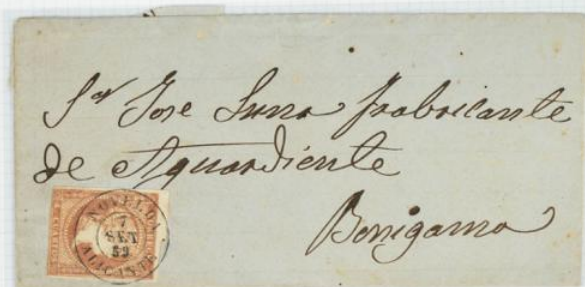 Sor Jose Luna fabricante
de Aguardiente
Benigama
NOVELDA
7
SET
59
ALICANTE